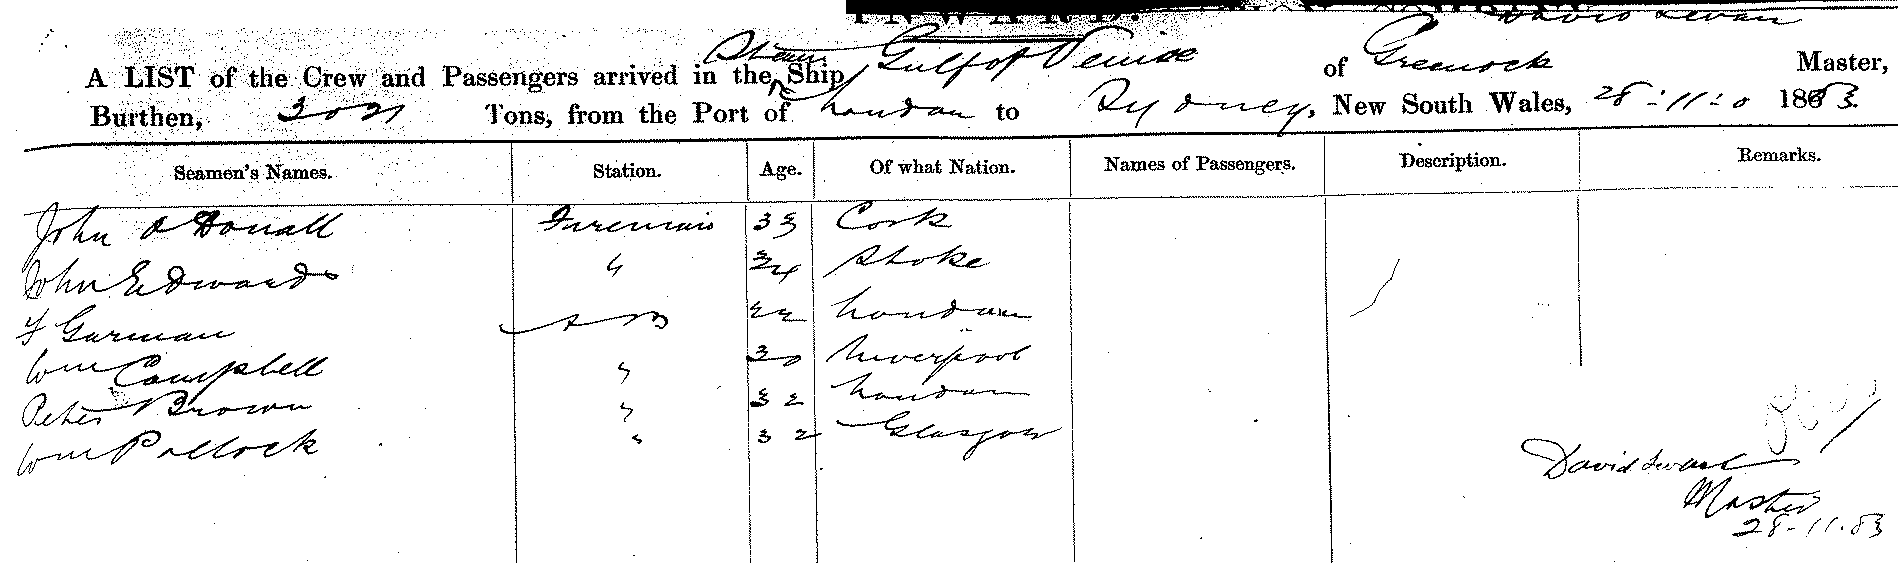 INWARD.
David
A LIST of the Crew and Passengers arrived in the Steam Ship Gulf of Venice of Greenock Master,
Burthen, Tons, from the Port of London to Sydney, New South Wales, 28-11-0 1883.
Seamen's Names. Station. Age. Of what Nation. Names of Passengers. Description. Remarks.
John O Donall Fireman 33 Cork
John Edwards " 34 Stoke
F Garman A B 22 London
Wm Campbell " 30 Liverpool
Peter Brown " 32 London
Wm Pollock " 32 Glasgow
David
Master
28-11-83